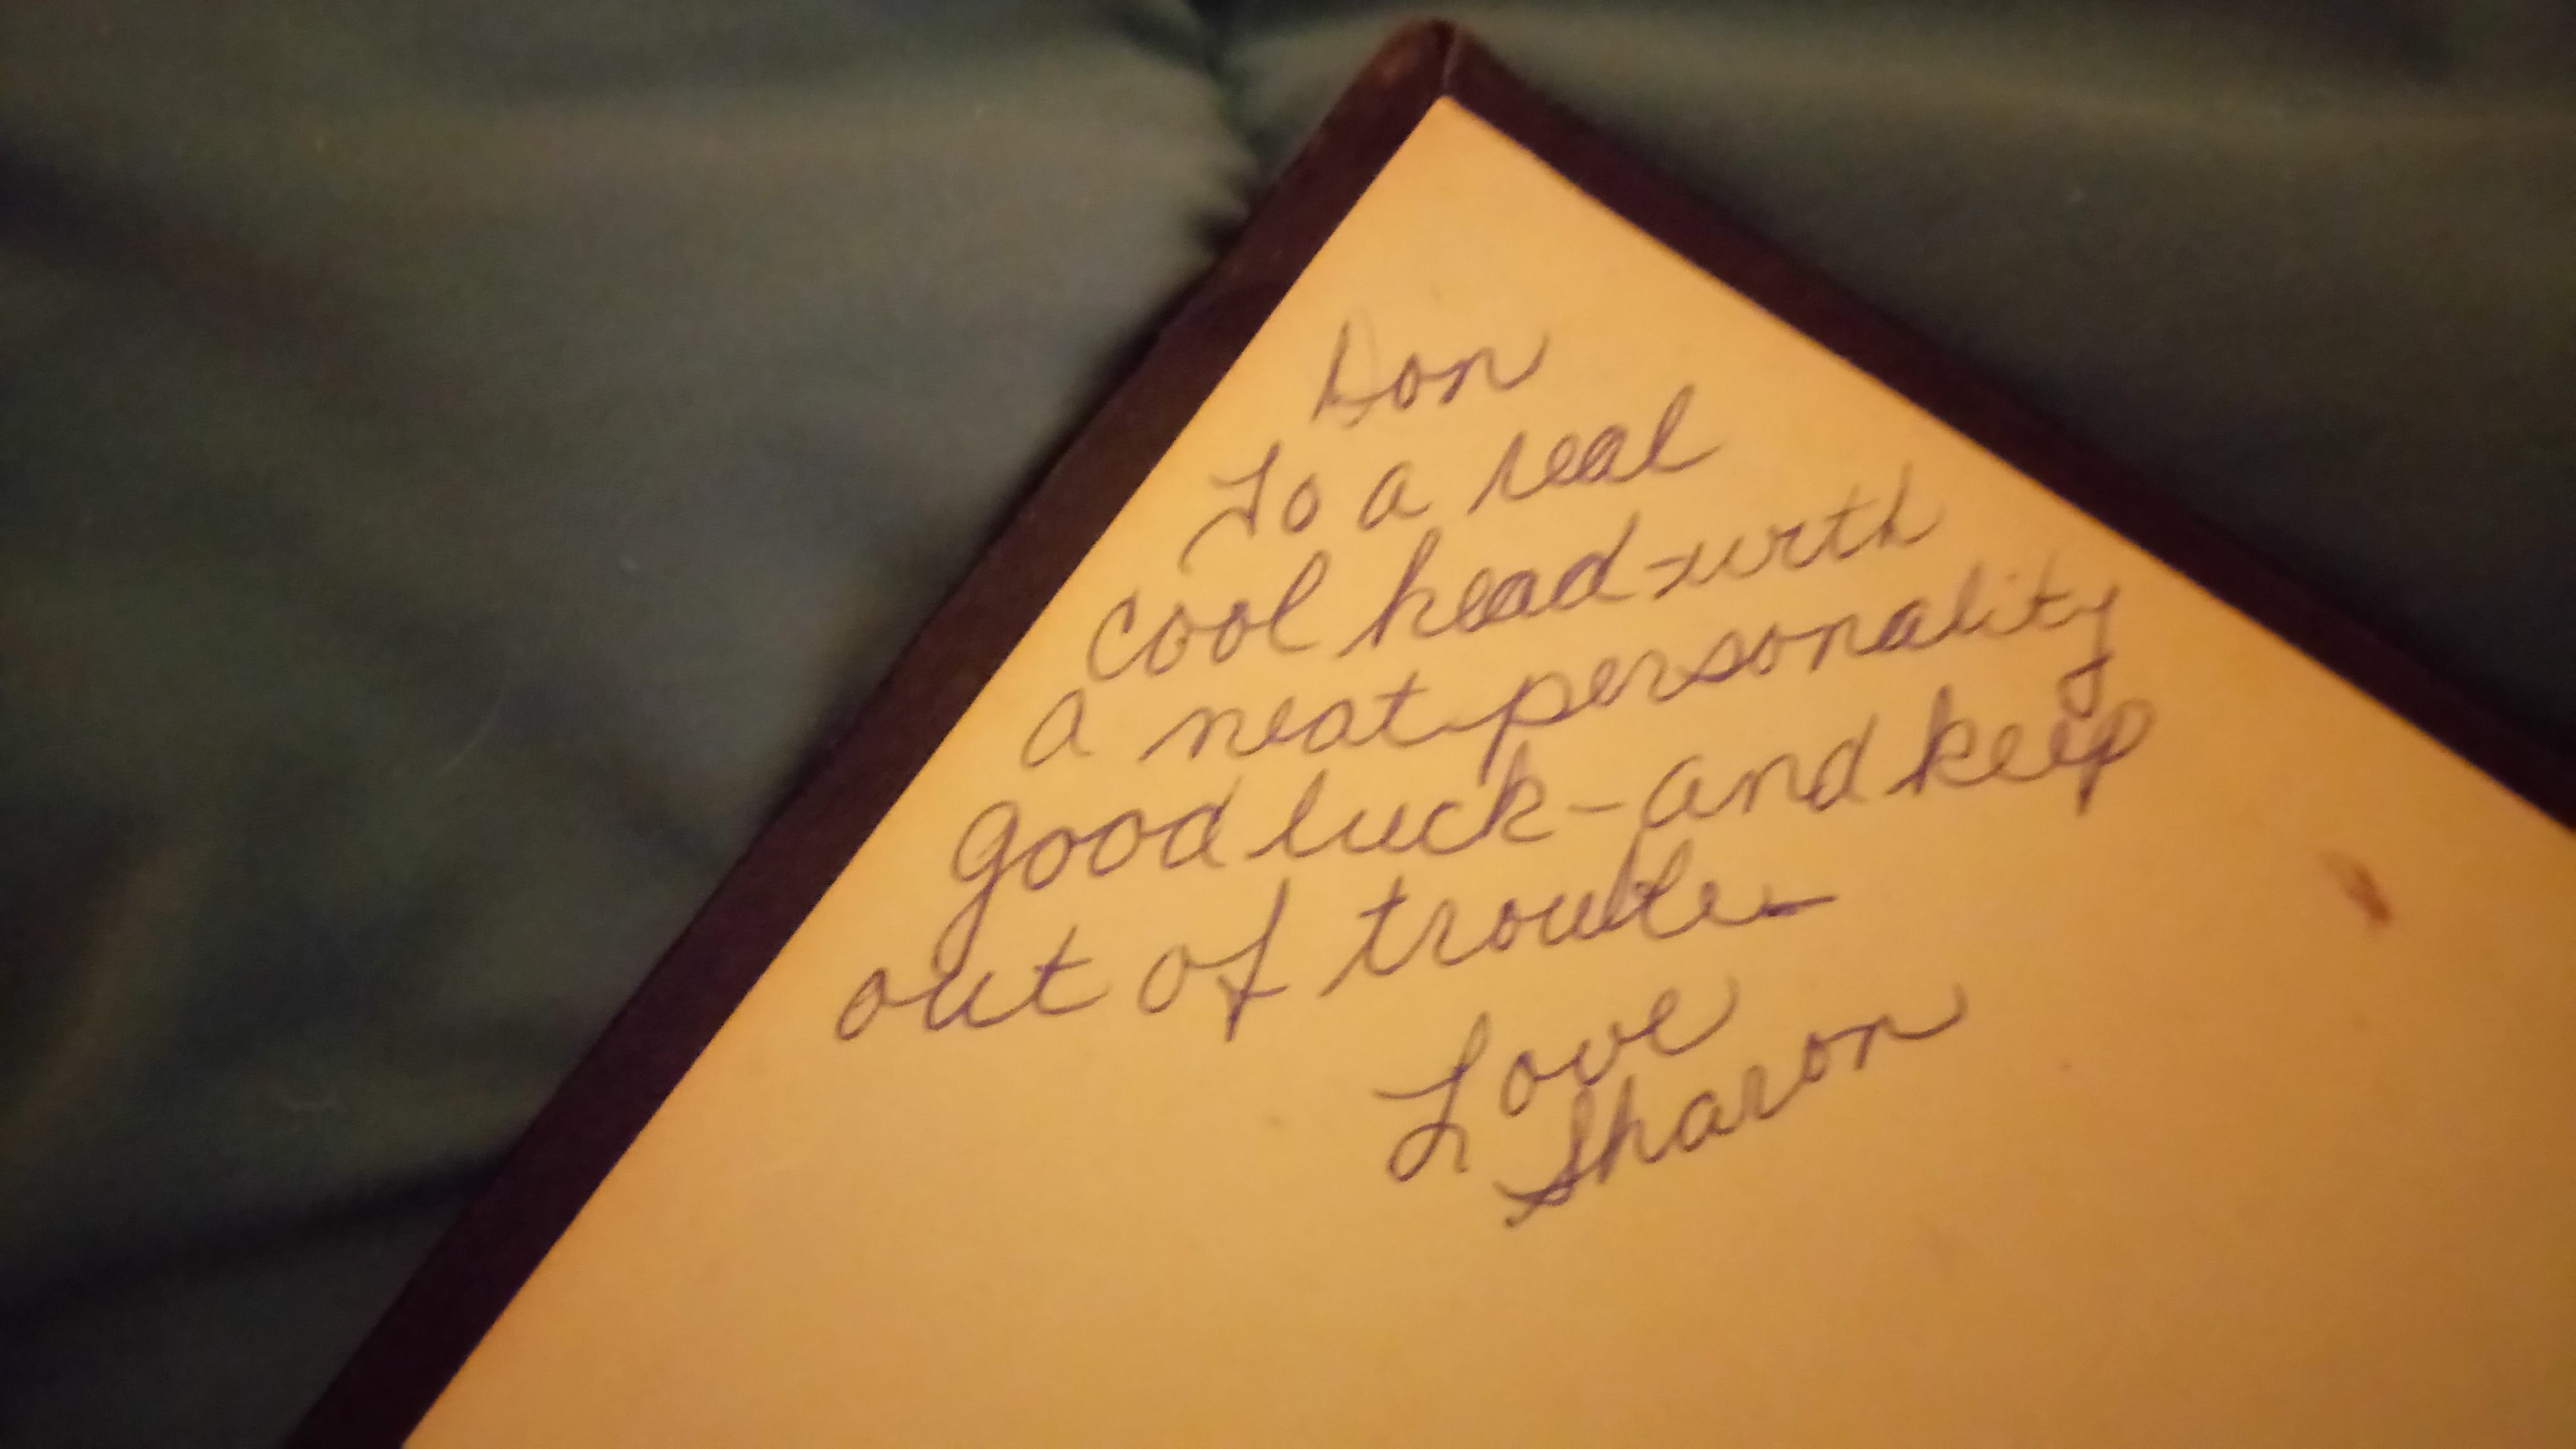 Don
To a real
cool head-with
a neat personality
good luck-and keep
out of trouble-
Love
Sharon